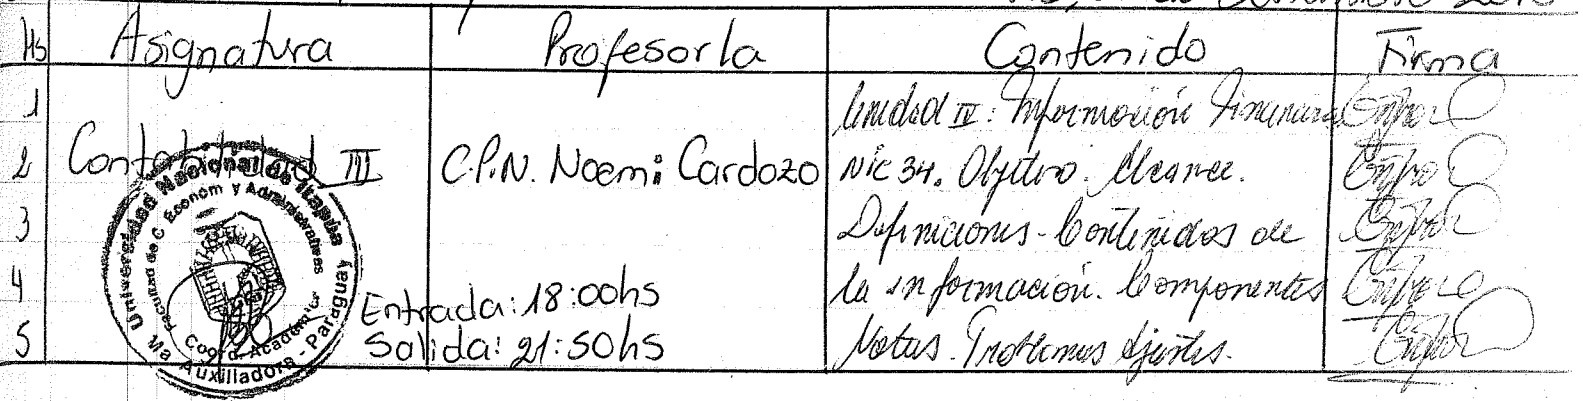 de
Hs Asignatura Profesor/a Contenido Firma
1 Unidad IV: Información Financiera
2 Contabilidad III C.P.N. Noemi Cardozo NIC 34. Objetivo. Alcance.
3 Definiciones - Contenidos de
4 la información. Componentes
Entrada: 18:00hs
5 Notas. Problemas Ajustes.
Salida: 21:50hs
Universidad Nacional de Itapúa
Facultad de C. Econom y Administrativas
Coord. Académica
Ma Auxiliadora - Paraguay